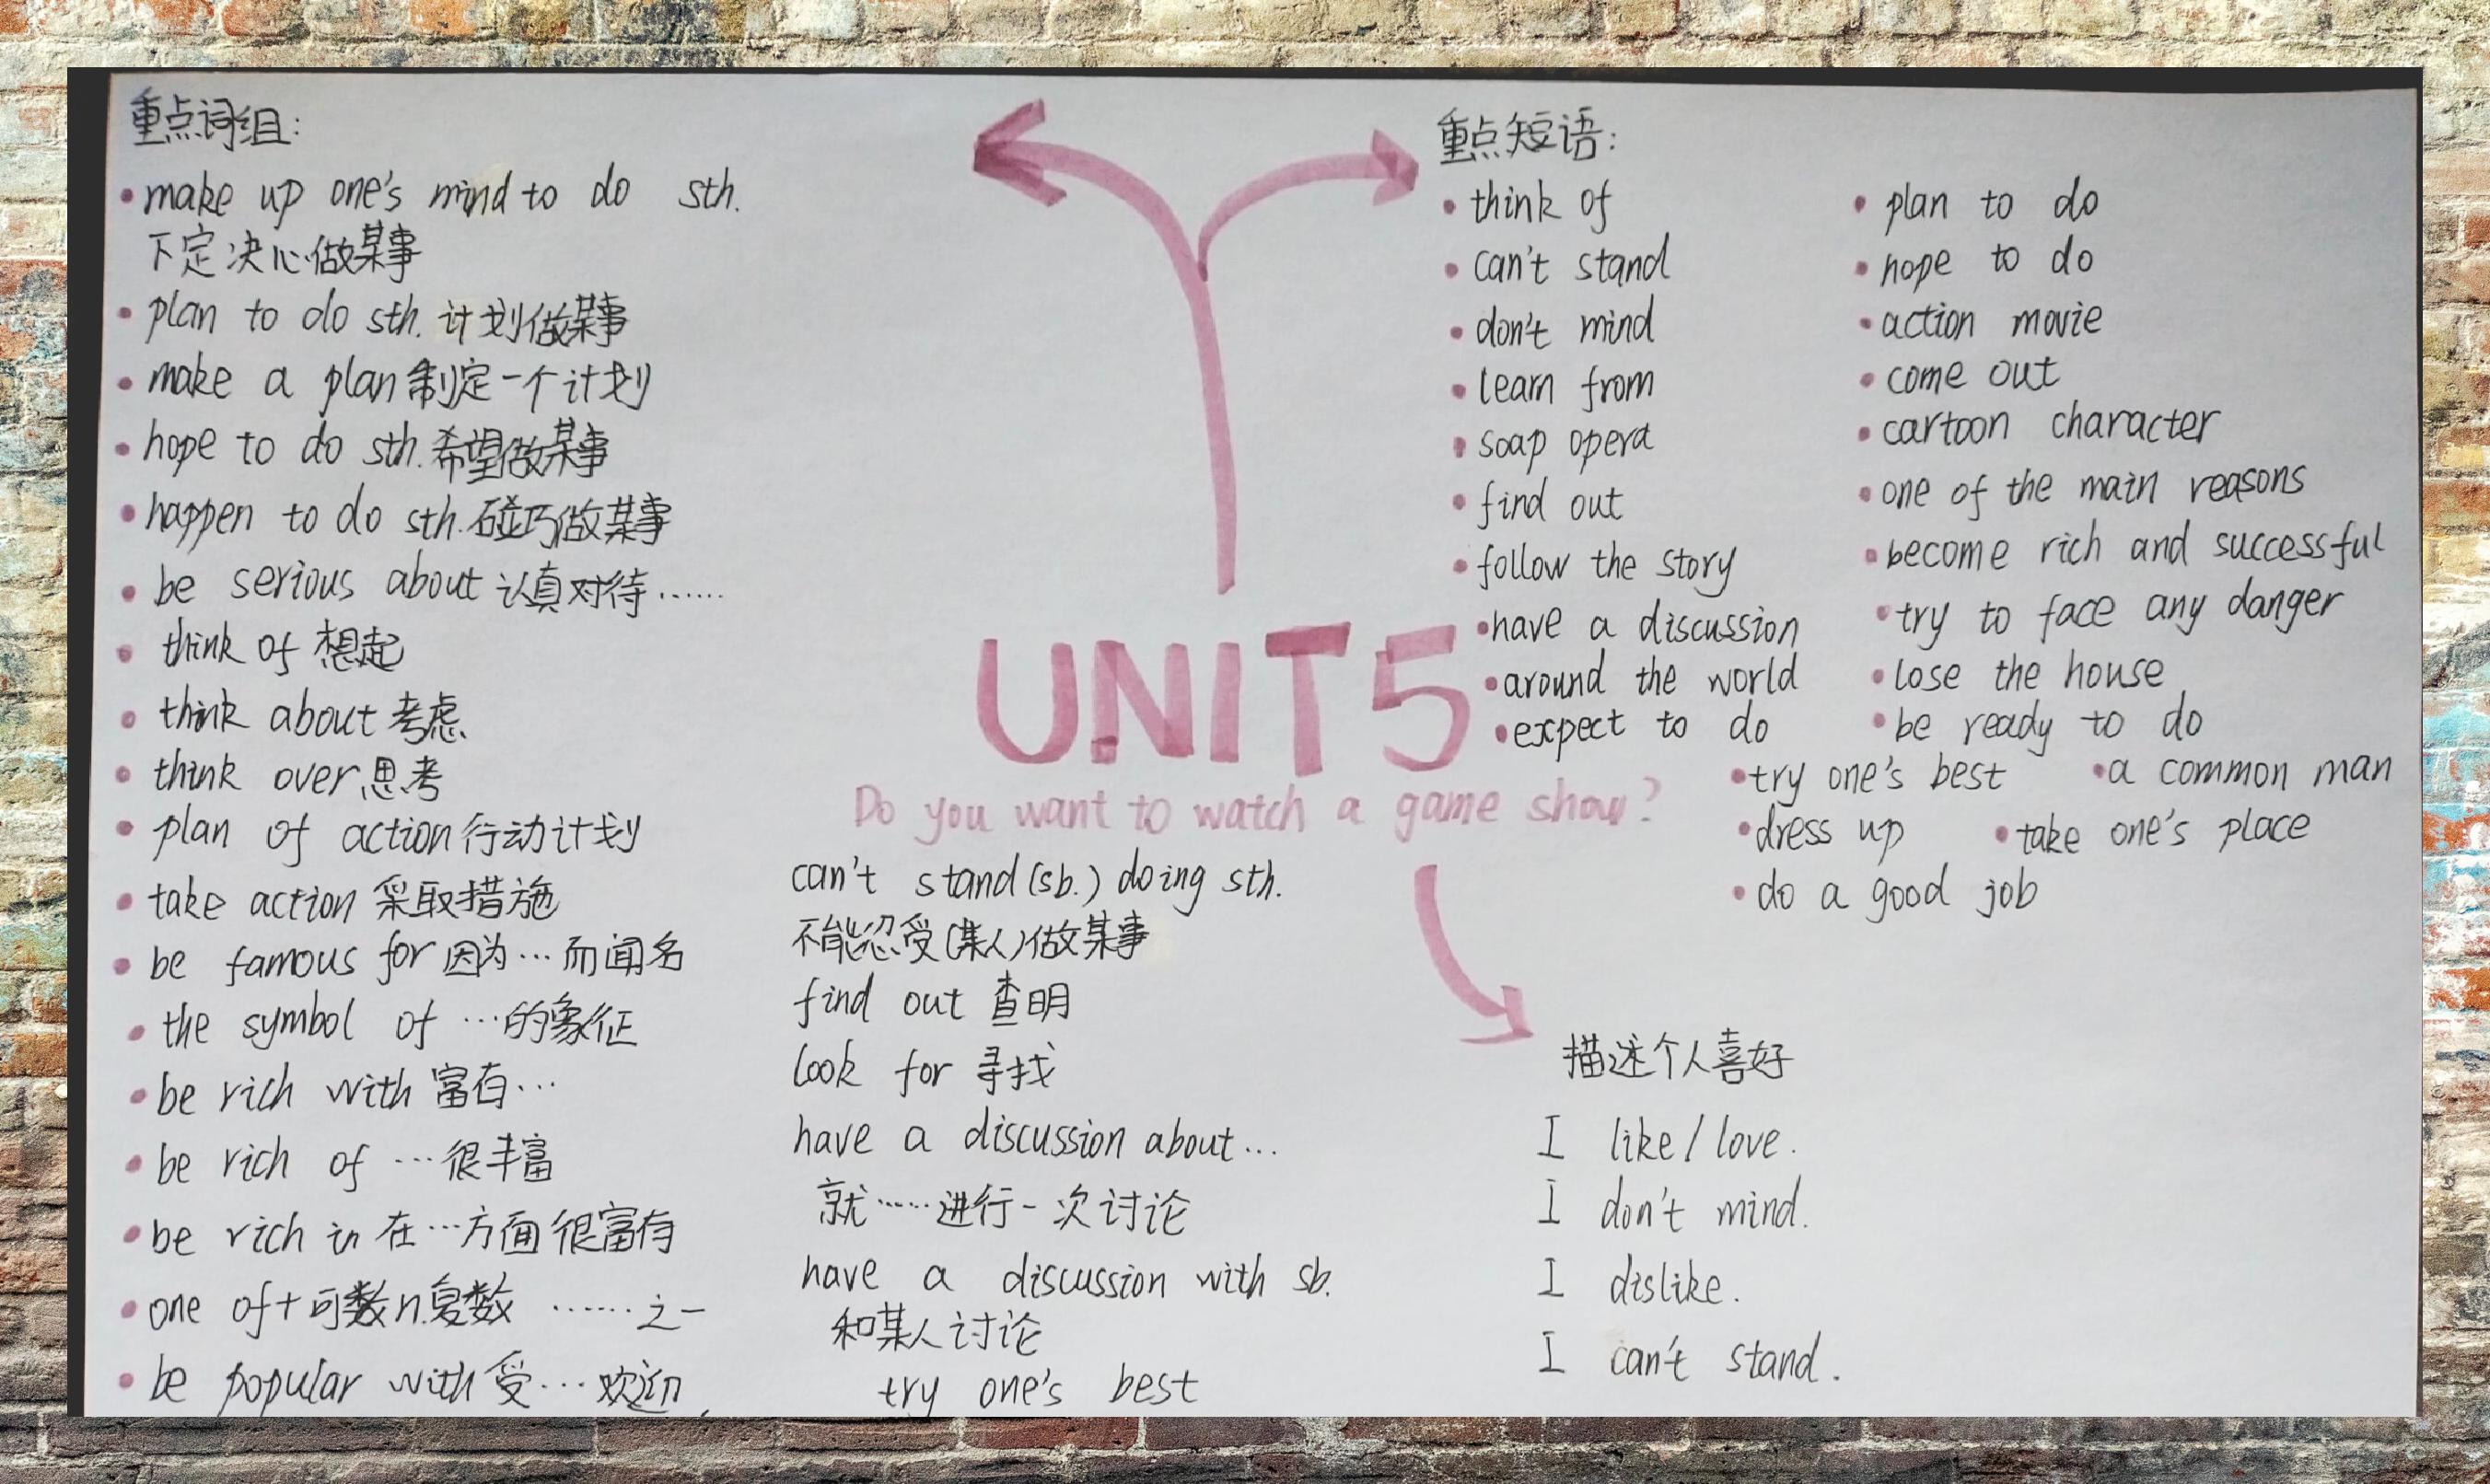 重点词组:
• make up one's mind to do sth.
下定决心做某事
• plan to do sth. 计划做某事
• make a plan 制定一个计划
• hope to do sth. 希望做某事
• happen to do sth. 碰巧做某事
• be serious about 认真对待……
• think of 想起
• think about 考虑
• think over 思考
• plan of action 行动计划
• take action 采取措施
• be famous for 因为…而闻名
• the symbol of …的象征
• be rich with 富有…
• be rich of …很丰富
• be rich in 在…方面很富有
• one of + 可数n.复数 ……之一
• be popular with 受…欢迎
UNIT5
Do you want to watch a game show?
can't stand (sb.) doing sth.
不能忍受(某人)做某事
find out 查明
look for 寻找
have a discussion about…
就……进行一次讨论
have a discussion with sb.
和某人讨论
try one's best
重点短语:
• think of
• can't stand
• don't mind
• learn from
• soap opera
• find out
• follow the story
• have a discussion
• around the world
• expect to do
• plan to do
• hope to do
• action movie
• come out
• cartoon character
• one of the main reasons
• become rich and successful
• try to face any danger
• lose the house
• be ready to do
• try one's best • a common man
• dress up • take one's place
• do a good job
描述个人喜好
I like / love.
I don't mind.
I dislike.
I can't stand.